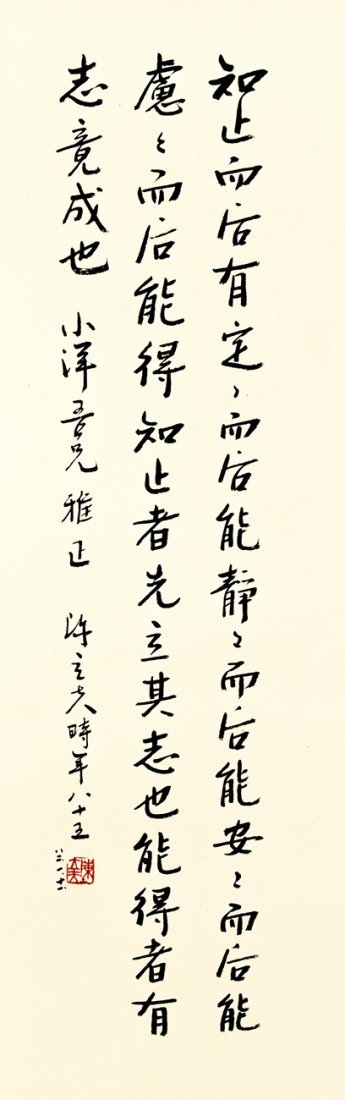 知止而后有定〻而后能靜〻而后能安〻而后能
慮〻而后能得知止者先立其志也能得者有
志竟成也 小洋吾兄 雅正 陈立夫時年八十五